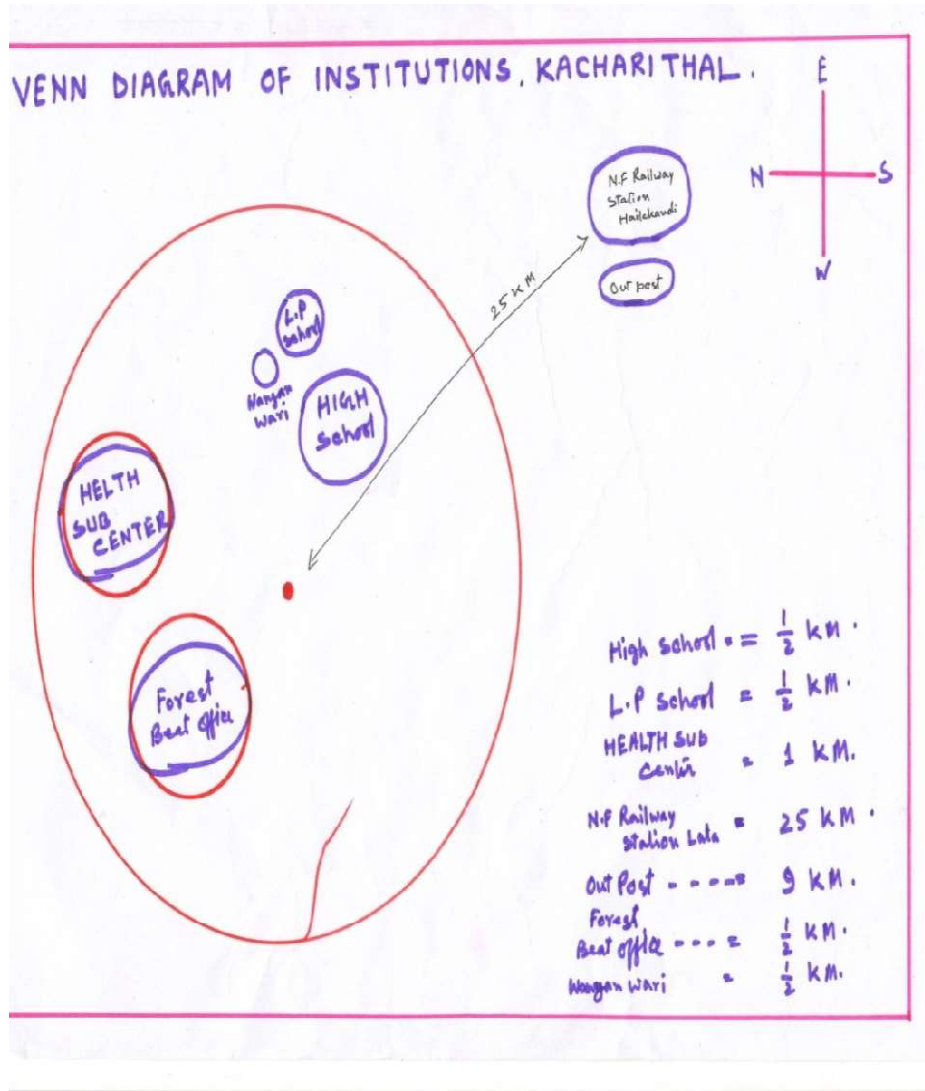 VENN DIAGRAM OF INSTITUTIONS, KACHARITHAL.
E
N
S
W
N.F Railway
Station
Hailakandi
Out post
25 KM
L.P
School
Wangan
Wari
HIGH
School
HELTH
SUB
CENTER
Forest
Beat office
High School = 1/2 KM.
L.P School = 1/2 KM.
HEALTH SUB
Center = 1 KM.
N.F Railway
Station Lala = 25 KM.
Out Post - - - - = 9 KM.
Forest
Beat office - - - = 1/2 KM.
Wangan Wari = 1/2 KM.